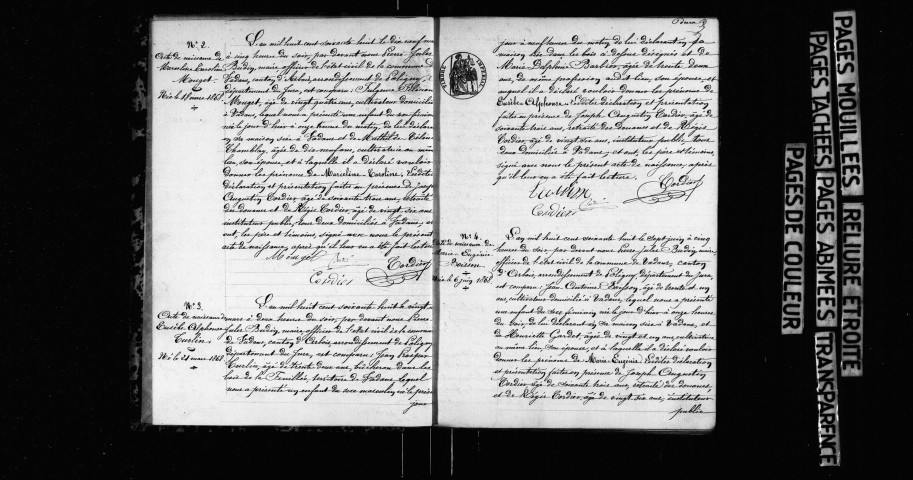 N° 2.
Acte de naissance de
Marceline Caroline
Mouget
Née le 18 mars 1868.
L'an mil huit cent soixante huit le dix neuf mars
à cinq heures du soir, par devant nous Pierre Jules
Budin, maire officier de l'état civil de la commune de
Vadans, canton d'Arbois, arrondissement de Poligny,
département du Jura, est comparu
Mouget, âgé de vingt quatre ans, cultivateur domicilié
à Vadans, lequel nous a présenté un enfant du sexe féminin
né le jour d'hier à onze heures du matin, de lui déclarant
en sa maison sise à Vadans et de
âgée de dix neuf ans, cultivatrice au même
lieu, son épouse, et à laquelle il a déclaré vouloir
donner les prénoms de Marceline Caroline. Lesdites
déclaration et présentation faites en présence de Joseph
Augustin Cordier âgé de soixante trois ans, retraité
des douanes et de Régis Cordier, âgé de vingt six ans
instituteur public, tous deux domiciliés à Vadans, et
ont, les père et témoins, signé avec nous le présent
acte de naissance, après qu'il leur en a été fait lecture.
Mouget
Cordier
Cordier
N° 3.
Acte de naissance de
Emile Alphonse
Né le 21 mars 1868
L'an mil huit cent soixante huit le vingt
mars à deux heures du soir, par devant nous Pierre
Jules Budin, maire, officier de l'état civil de la commune
de Vadans, canton d'Arbois, arrondissement de Poligny
département du Jura, est comparu Jean
âgé de trente deux ans, bûcheron dans les
bois de la Feuillée, territoire de Vadans, lequel
nous a présenté un enfant du sexe masculin né le présent
jour
jour à neuf heures du matin de lui déclarant en sa
maison sise dans les bois ci dessus désignés et de
Marie Delphine Barbier, âgée de trente deux
ans, de même profession audit lieu, son épouse, et
auquel il a déclaré vouloir donner les prénoms de
Emile Alphonse. Lesdites déclaration et présentation
faites en présence de Joseph Augustin Cordier, âgé de
soixante trois ans, retraité des douanes et de Régis
Cordier, âgé de vingt six ans, instituteur public, tous
deux domiciliés à Vadans, et ont, les père et témoins
signé avec nous le présent acte de naissance, après
qu'il leur en a été fait lecture.
Cordier
Cordier
N° 4.
Acte de naissance de
Marie Eugénie
Née le 6 juin 1868.
L'an mil huit cent soixante huit le sept juin à cinq
heures du soir, par devant nous Pierre Jules Budin, maire
officier de l'état civil de la commune de Vadans, canton
d'Arbois, arrondissement de Poligny, département du Jura,
est comparu Jean âgé de trente et un
ans, cultivateur domicilié à Vadans, lequel nous a présenté
un enfant du sexe féminin né le jour d'hier à onze heures
du soir, de lui déclarant en sa maison sise à Vadans, et
de Henriette âgée de vingt et un ans, cultivatrice
au même lieu, son épouse, et à laquelle il a déclaré vouloir
donner les prénoms de Marie Eugénie. Lesdites déclaration
et présentation faites en présence de Joseph Augustin
Cordier âgé de soixante trois ans, retraité des douanes,
et de Régis Cordier, âgé de vingt six ans, instituteur
public
PAGES MOUILLEES RELIURE ETROITE
PAGES TACHEES PAGES ABIMEES TRANSPARENCE
PAGES DE COULEUR